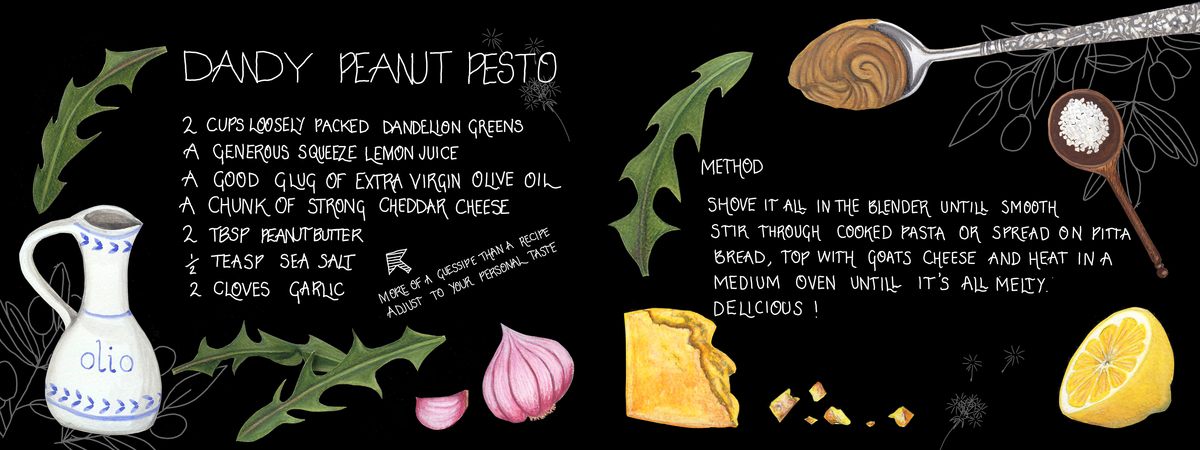 DANDY PEANUT PESTO
2 CUPS LOOSELY PACKED DANDELION GREENS
A GENEROUS SQUEEZE LEMON JUICE
A GOOD GLUG OF EXTRA VIRGIN OLIVE OIL
A CHUNK OF STRONG CHEDDAR CHEESE
2 TBSP PEANUT BUTTER
½ TEASP SEA SALT
2 CLOVES GARLIC
MORE OF A GUESSIPE THAN A RECIPE
ADJUST TO YOUR PERSONAL TASTE
olio
METHOD
SHOVE IT ALL IN THE BLENDER UNTILL SMOOTH
STIR THROUGH COOKED PASTA OR SPREAD ON PITTA
BREAD, TOP WITH GOATS CHEESE AND HEAT IN A
MEDIUM OVEN UNTILL IT'S ALL MELTY.
DELICIOUS !